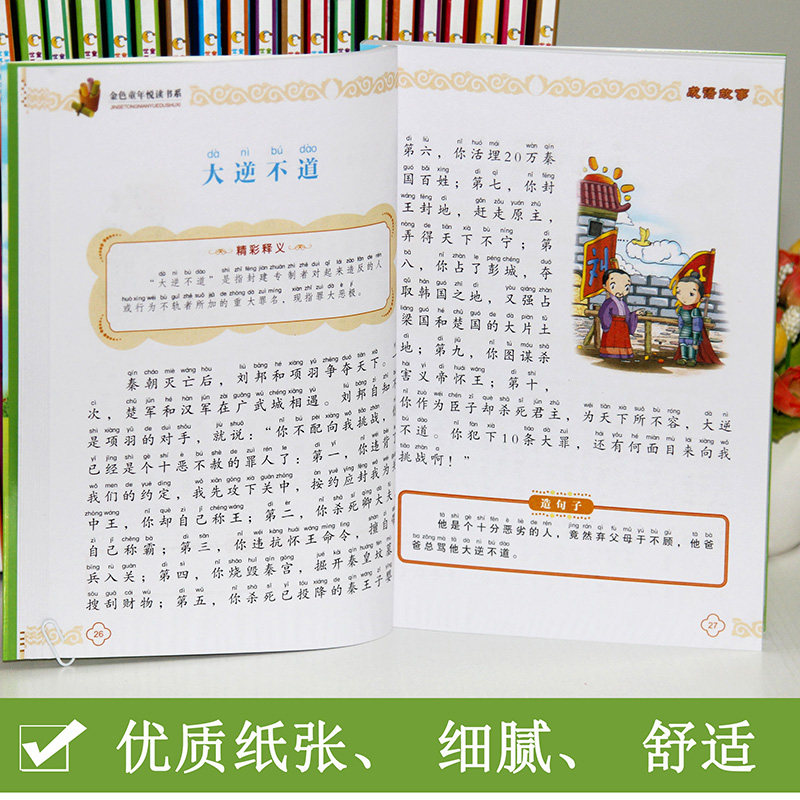 金色童年悦读书系
JINSETONGNIANYUEDUSHUXI
dà nì bú dào
大逆不道
精彩释义
“大逆不道”是指封建专制者对起来造反的人
或行为不轨者所加的重大罪名，现指罪大恶极。
秦朝灭亡后，刘邦和项羽争夺天下。
次，楚军和汉军在广武城相遇。刘邦自知不
是项羽的对手，就说：“你不配向我挑战，
已经是个十恶不赦的罪人了：第一，你违背
我们的约定，我先攻下关中，按约应封我为
中王，你却自己称王；第二，你杀死卿大夫
自己称霸；第三，你违抗怀王命令，擅自
兵入关；第四，你烧毁秦宫，掘开秦皇坟墓
搜刮财物；第五，你杀死已投降的秦王子婴
26
成语故事
第六，你活埋20万秦
国百姓；第七，你封
王封地，赶走原主，
弄得天下不宁；第
八，你占了彭城，夺
取韩国之地，又强占
梁国和楚国的大片土
地；第九，你图谋杀
害义帝怀王；第十，
你作为臣子却杀死君主，为天下所不容，大逆
不道。你犯下10条大罪，还有何面目来向我
挑战啊！”
刘
造句子
他是个十分恶劣的人，竟然弃父母于不顾，他爸
爸总骂他大逆不道。
27
优质纸张、 细腻、 舒适